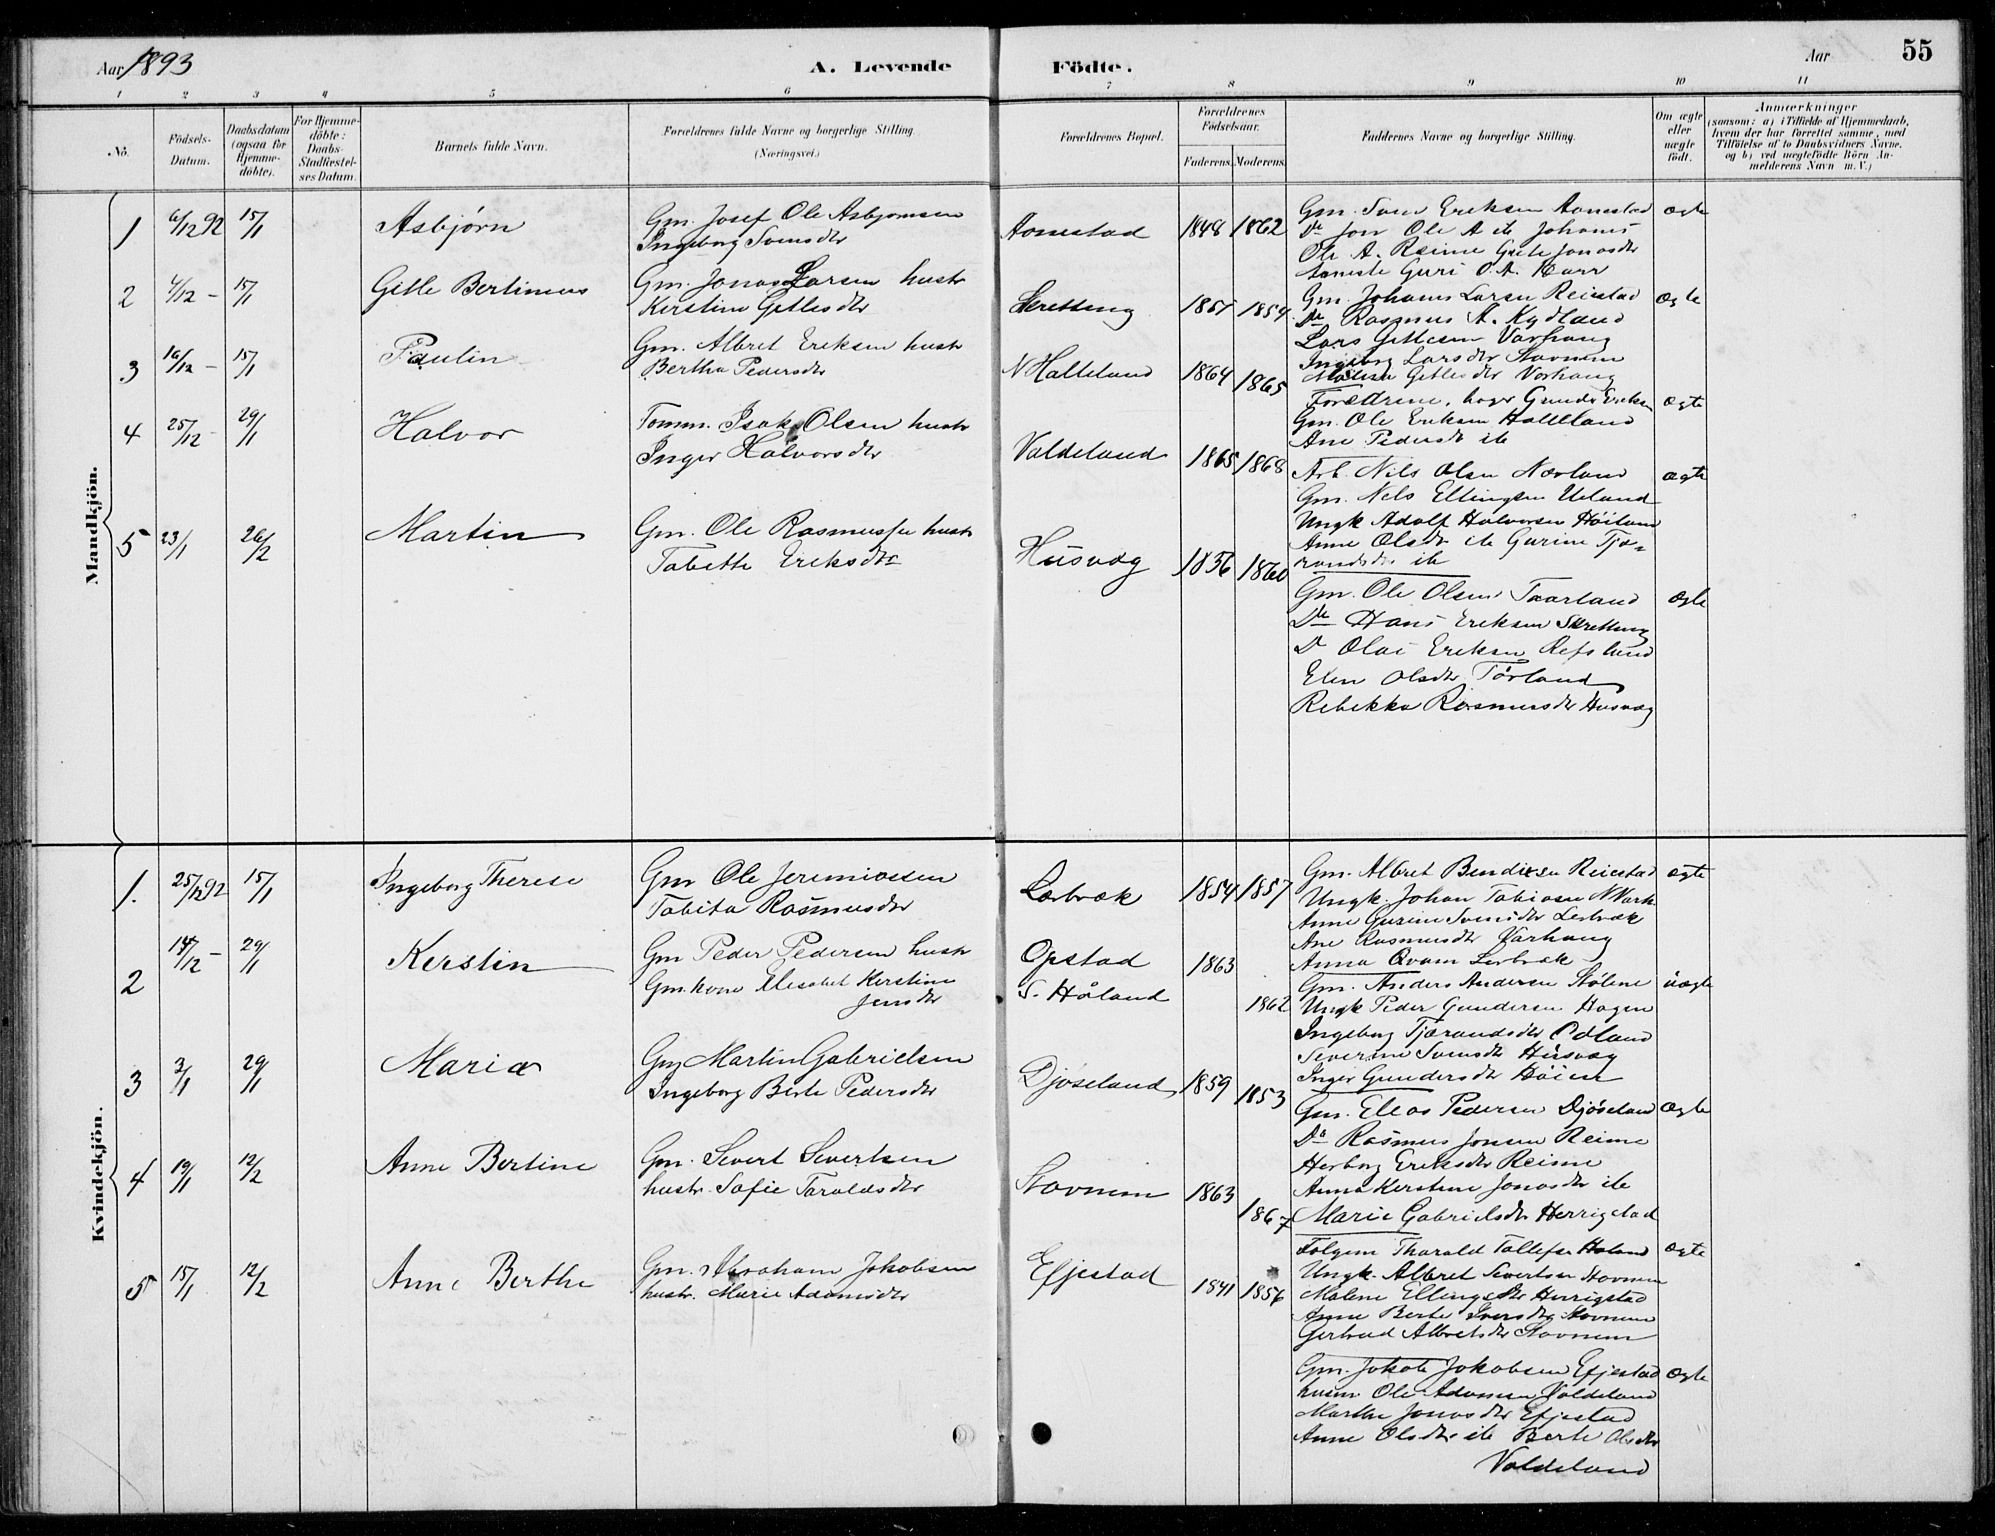 Aar 1893
A. Levende Födte.
Aar
55
1 2 3 4 5 6 7 8 9 10 11
No.
Födsels-Datum.
Daabsdatum (ogsaa for Hjemme-döbte).
For Hjemme-döbte: Daabs-Stadfæstel-ses Datum.
Barnets fulde Navn.
Forældrenes fulde Navne og borgerlige Stilling.
(Næringsvei.)
Forældrenes Bopæl.
Forældrenes Födselsaar.
Faderens. Moderens.
Faddernes Navne og borgerlige Stilling.
Om ægte eller uægte födt.
Anmærkninger
(saasom: a) i Tilfælde af Hjemmedaab,
hvem der har forrettet samme, med
Tilföielse af to Daabsvidners Navne.
og b) ved uægtefödte Börn An-
melderens Navn m. V.)
Mandkjön.
1 6/12 92 15/1 Asbjørn
Gm. Josef Ole Asbjornsen
Ingeborg Svensdtr
Aanestad 1848 1862
Gm. Sven Eriksen Aanestad ægte
De Jon Ole A ib Johans
Ole A. Reime Grete Jonasdtr
Guri O. A. Karr
2 4/12 - 15/1 Gitle Bertinius
Gm. Jonas Larsen hustr
Kerstine Gitlesdtr
Skretting 1857 1854
Gm. Johans Larsen Reiestad ægte
De Rasmus A. Kydland
Lars Gitlesen Varhaug
Ingeborg Larsdtr Stavnem
Malene Gitlesdtr Varhaug
3 16/12 - 15/1 Paulin
Gm. Albret Eriksen hustr
Bertha Pedersdtr
N Halleland 1864 1865
Forældrene, Gunder Eriksen ægte
Gm. Ole Eriksen Halleland
Ane Pedersdtr ib
4 25/12 - 29/1 Halvor
Tomm. Isak Olsen hustr
Inger Halvorsdtr
Valdeland 1865 1868
Arb. Nils Olsen Nærland ægte
Gm. Nels Ellingsen Ueland
Ungk Adolf Halvorsen Höiland
Anne Olsdtr ib Gurine Tjø-
randsdtr ib
5 23/1 26/2 Martin
Gm. Ole Rasmussen hustr
Tabitte Eriksdtr
Husvæg 1856 1860
Gm. Ole Olsen Taarland ægte
De Hans Eriksen Skretting
D Olai Eriksen Refsland
Elen Olsdtr Tørland
Rebekka Rasmusdtr Husvæg
Kvindekjön.
1. 25/12 92 15/1 Ingeborg Therese
Gm Ole Jeremiassen
Tabita Rasmusdtr
Lerbræk 1854 1857
Gm. Albret Bendixen Reiestad ægte
Ungk. Johan Tobiasen N Vark
Anne Gurine Svensdtr Lerbræk
Ane Rasmusdtr Varhaug
Anna Qvam Lerbræk
2 14/12 - 29/1 Kerstin
Gm Peder Pedersen hustr
Gm. kone Elisabet Kerstine
Jensdtr
Opstad 1863
S. Håland 1862
Gm. Anders Andersen Stølene uægte
Ungk Peder Gundersen Hagen
Ingeborg Tjørandsdtr Odland
Severine Svensdtr Husvæg
Inger Gundersdtr Höien
3 2/1 29/1 Maria
Gm Martin Gabrielsen
Ingeborg Berte Pedersdtr
Djøseland 1859 1853
Gm. Elias Pedersen Djøseland ægte
De Rasmus Jonsen Reime
Herborg Eriksdtr Reime
Anna Kerstine Jonasdtr ib
Marie Gabrielsdtr Herrigstad
4 19/1 12/2 Anne Bertine
Gm. Severt Severtsen
hustr. Sofie Taraldsdtr
Stavnem 1863 1867
Folgem Tharald Tollefsen Haland ægte
Ungk. Albret Severtsen Stavnem
Malene Ellingsdtr Herrigstad
Anne Berte Iversdtr Stavnem
Gertrud Albretsdtr Stavnem
5 15/1 12/2 Anne Berthe
Gm. Abraham Jakobsen
hustr. Marie Adamsdtr
Efjestad 1841 1856
Gm. Jakob Jakobsen Efjestad ægte
husm Ole Adamsen Valdeland
Marthe Jonasdtr Efjestad
Anne Olsdtr ib Berte Olsdtr
Valdeland